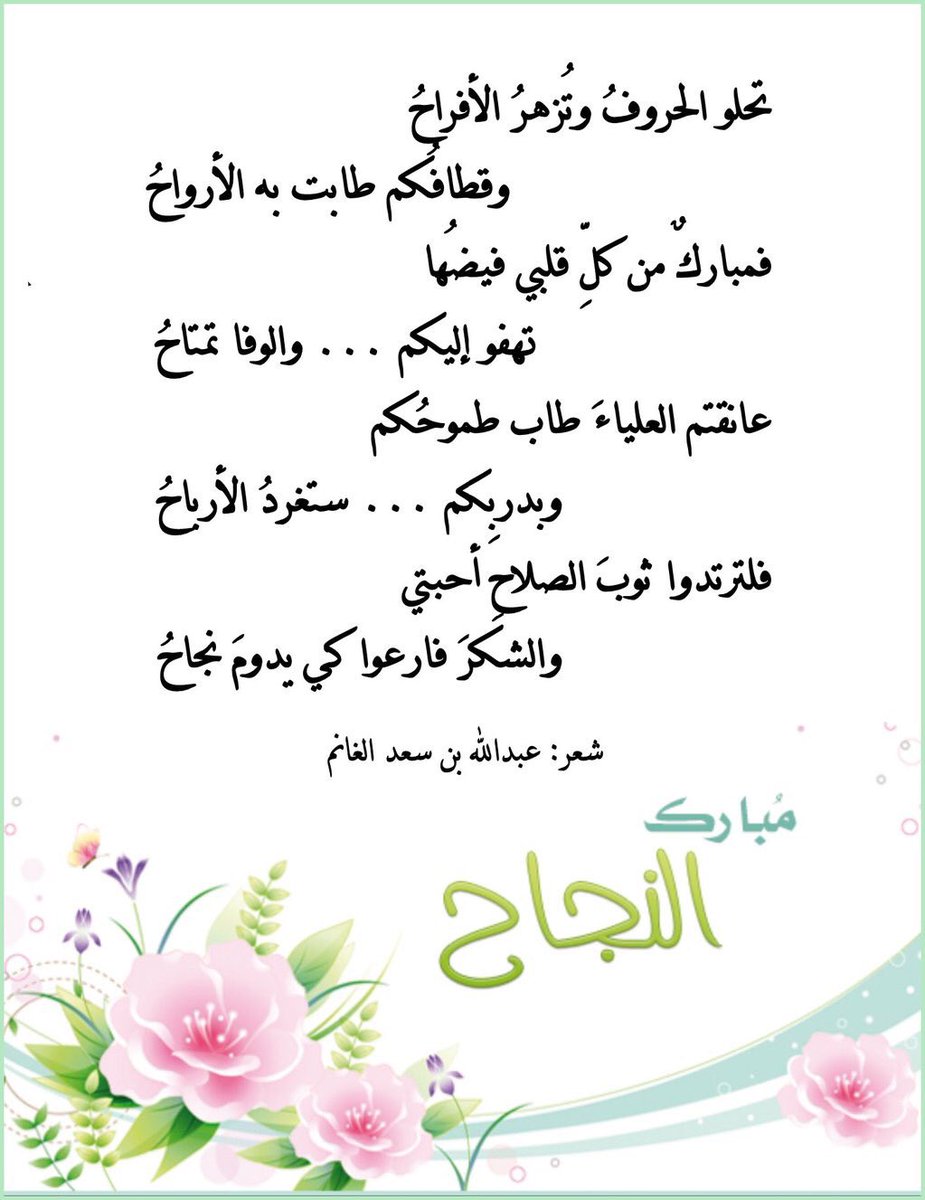 تحلو الحروفُ وتُزهرُ الأفراحُ
وقطافُكم طابت به الأرواحُ
فمباركٌ من كلِّ قلبي فيضُها
تهفو إليكم ... والوفا تمتاحُ
عانقتم العلياءَ طاب طموحُكم
وبدربِكم ... ستغردُ الأرباحُ
فلترتدوا ثوبَ الصلاحِ أحبتي
والشكرَ فارعوا كي يدومَ نجاحُ
شعر: عبدالله بن سعد الغانم
مُبارك
النجاح